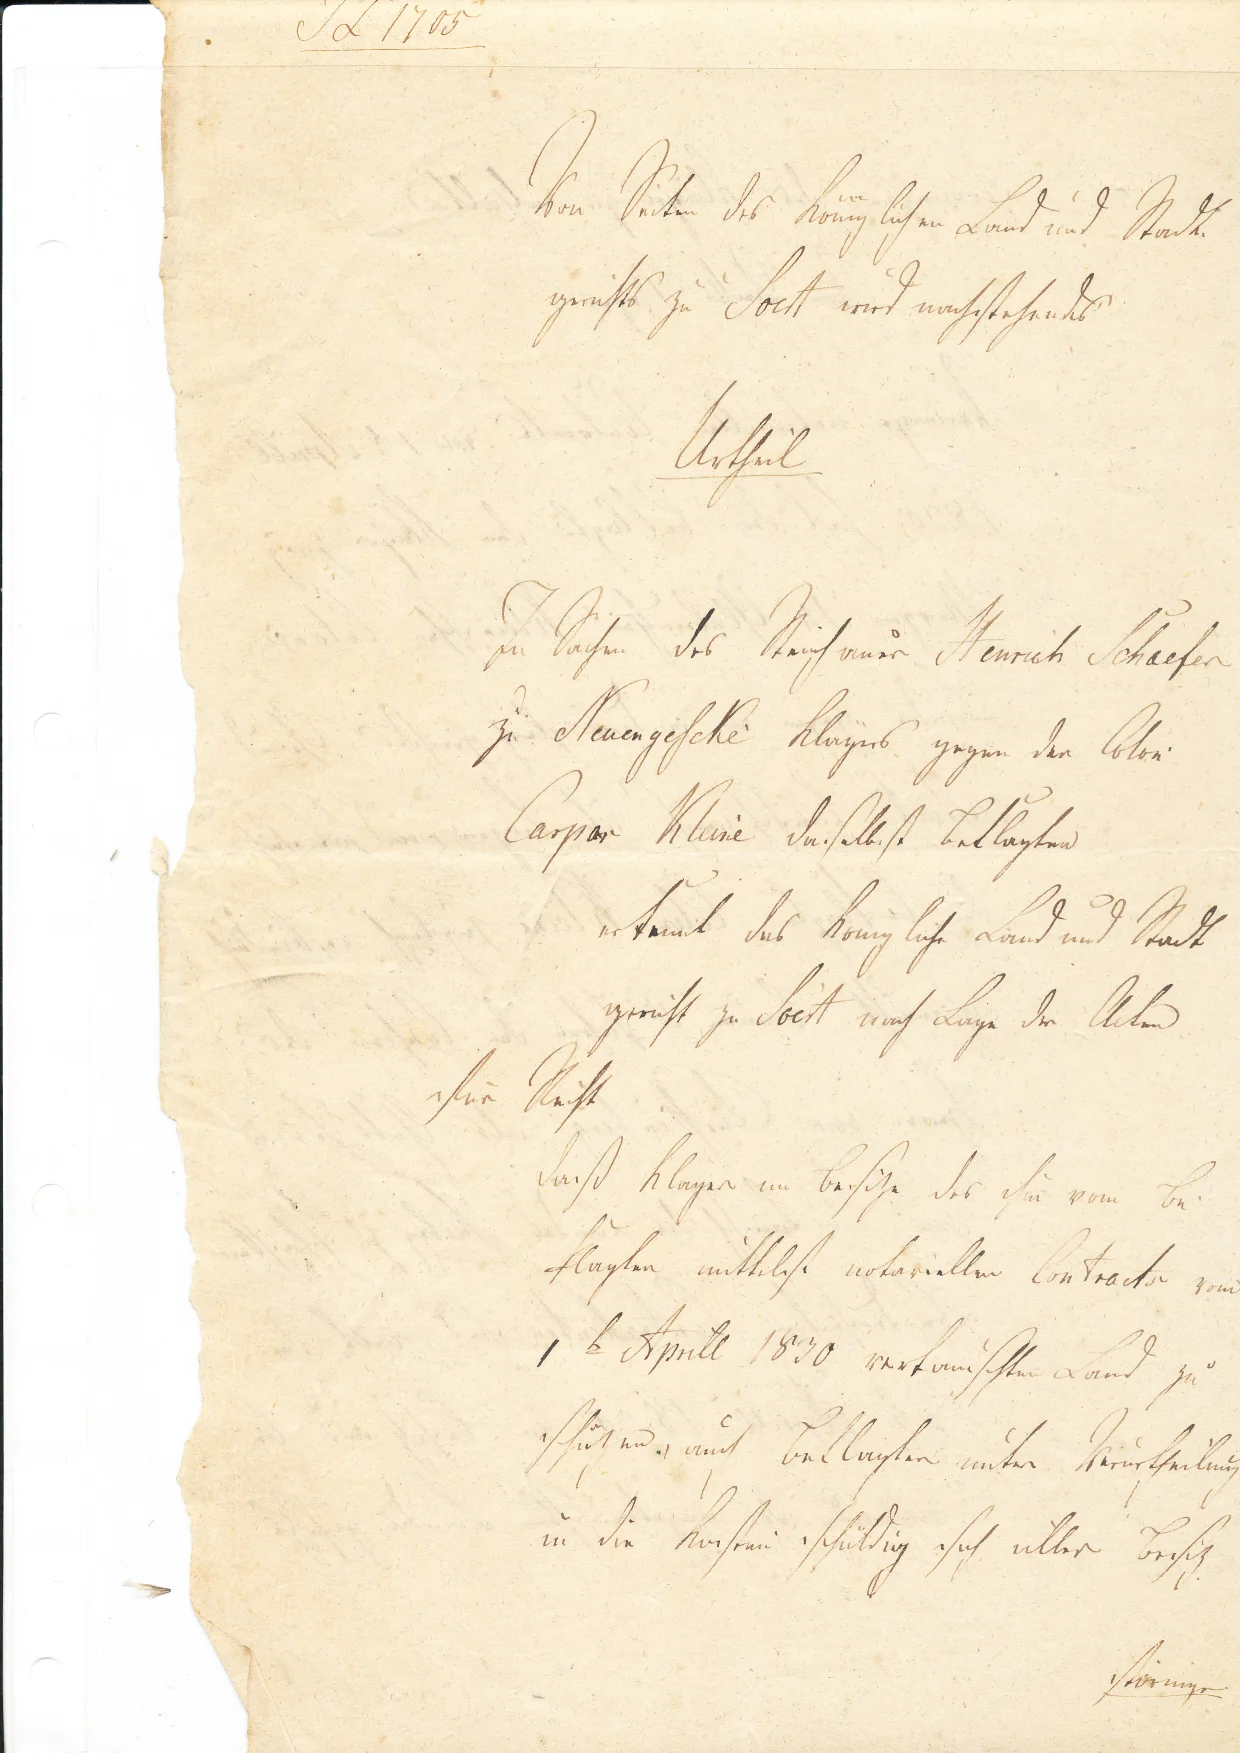 1705
Von Seiten des Königlichen Land und Stadt-
gerichts zu Soest wird nachstehendes
Urtheil
In Sachen des Henrich Schaefer
zu Neuengeseke Klägers gegen den Colon
Caspar Kleine daselbst Beklagten
erkennt das Königliche Land und Stadt
gericht zu Soest nach Lage der Acten
für Recht
daß Kläger im Besitze des ihm vom Be-
klagten mittelst notariellen Contracts vom
1 t Aprill 1830 vertauschten Land zu
schützen, auch Beklagter unter Verurtheilung
in die Kosten schuldig sich aller Besitz
störunge